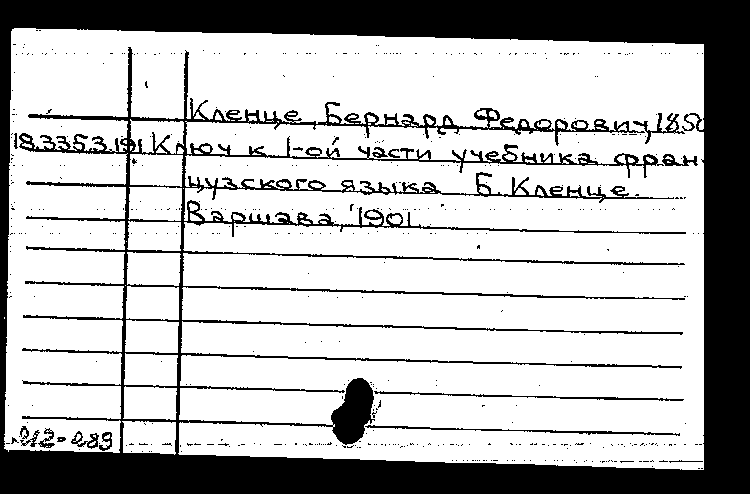 Кленце, Бернард Федорович, 1850
18.335.3.191 Ключ к 1-ой части учебника фран-
цузского языка Б. Кленце.
Варшава, 1901